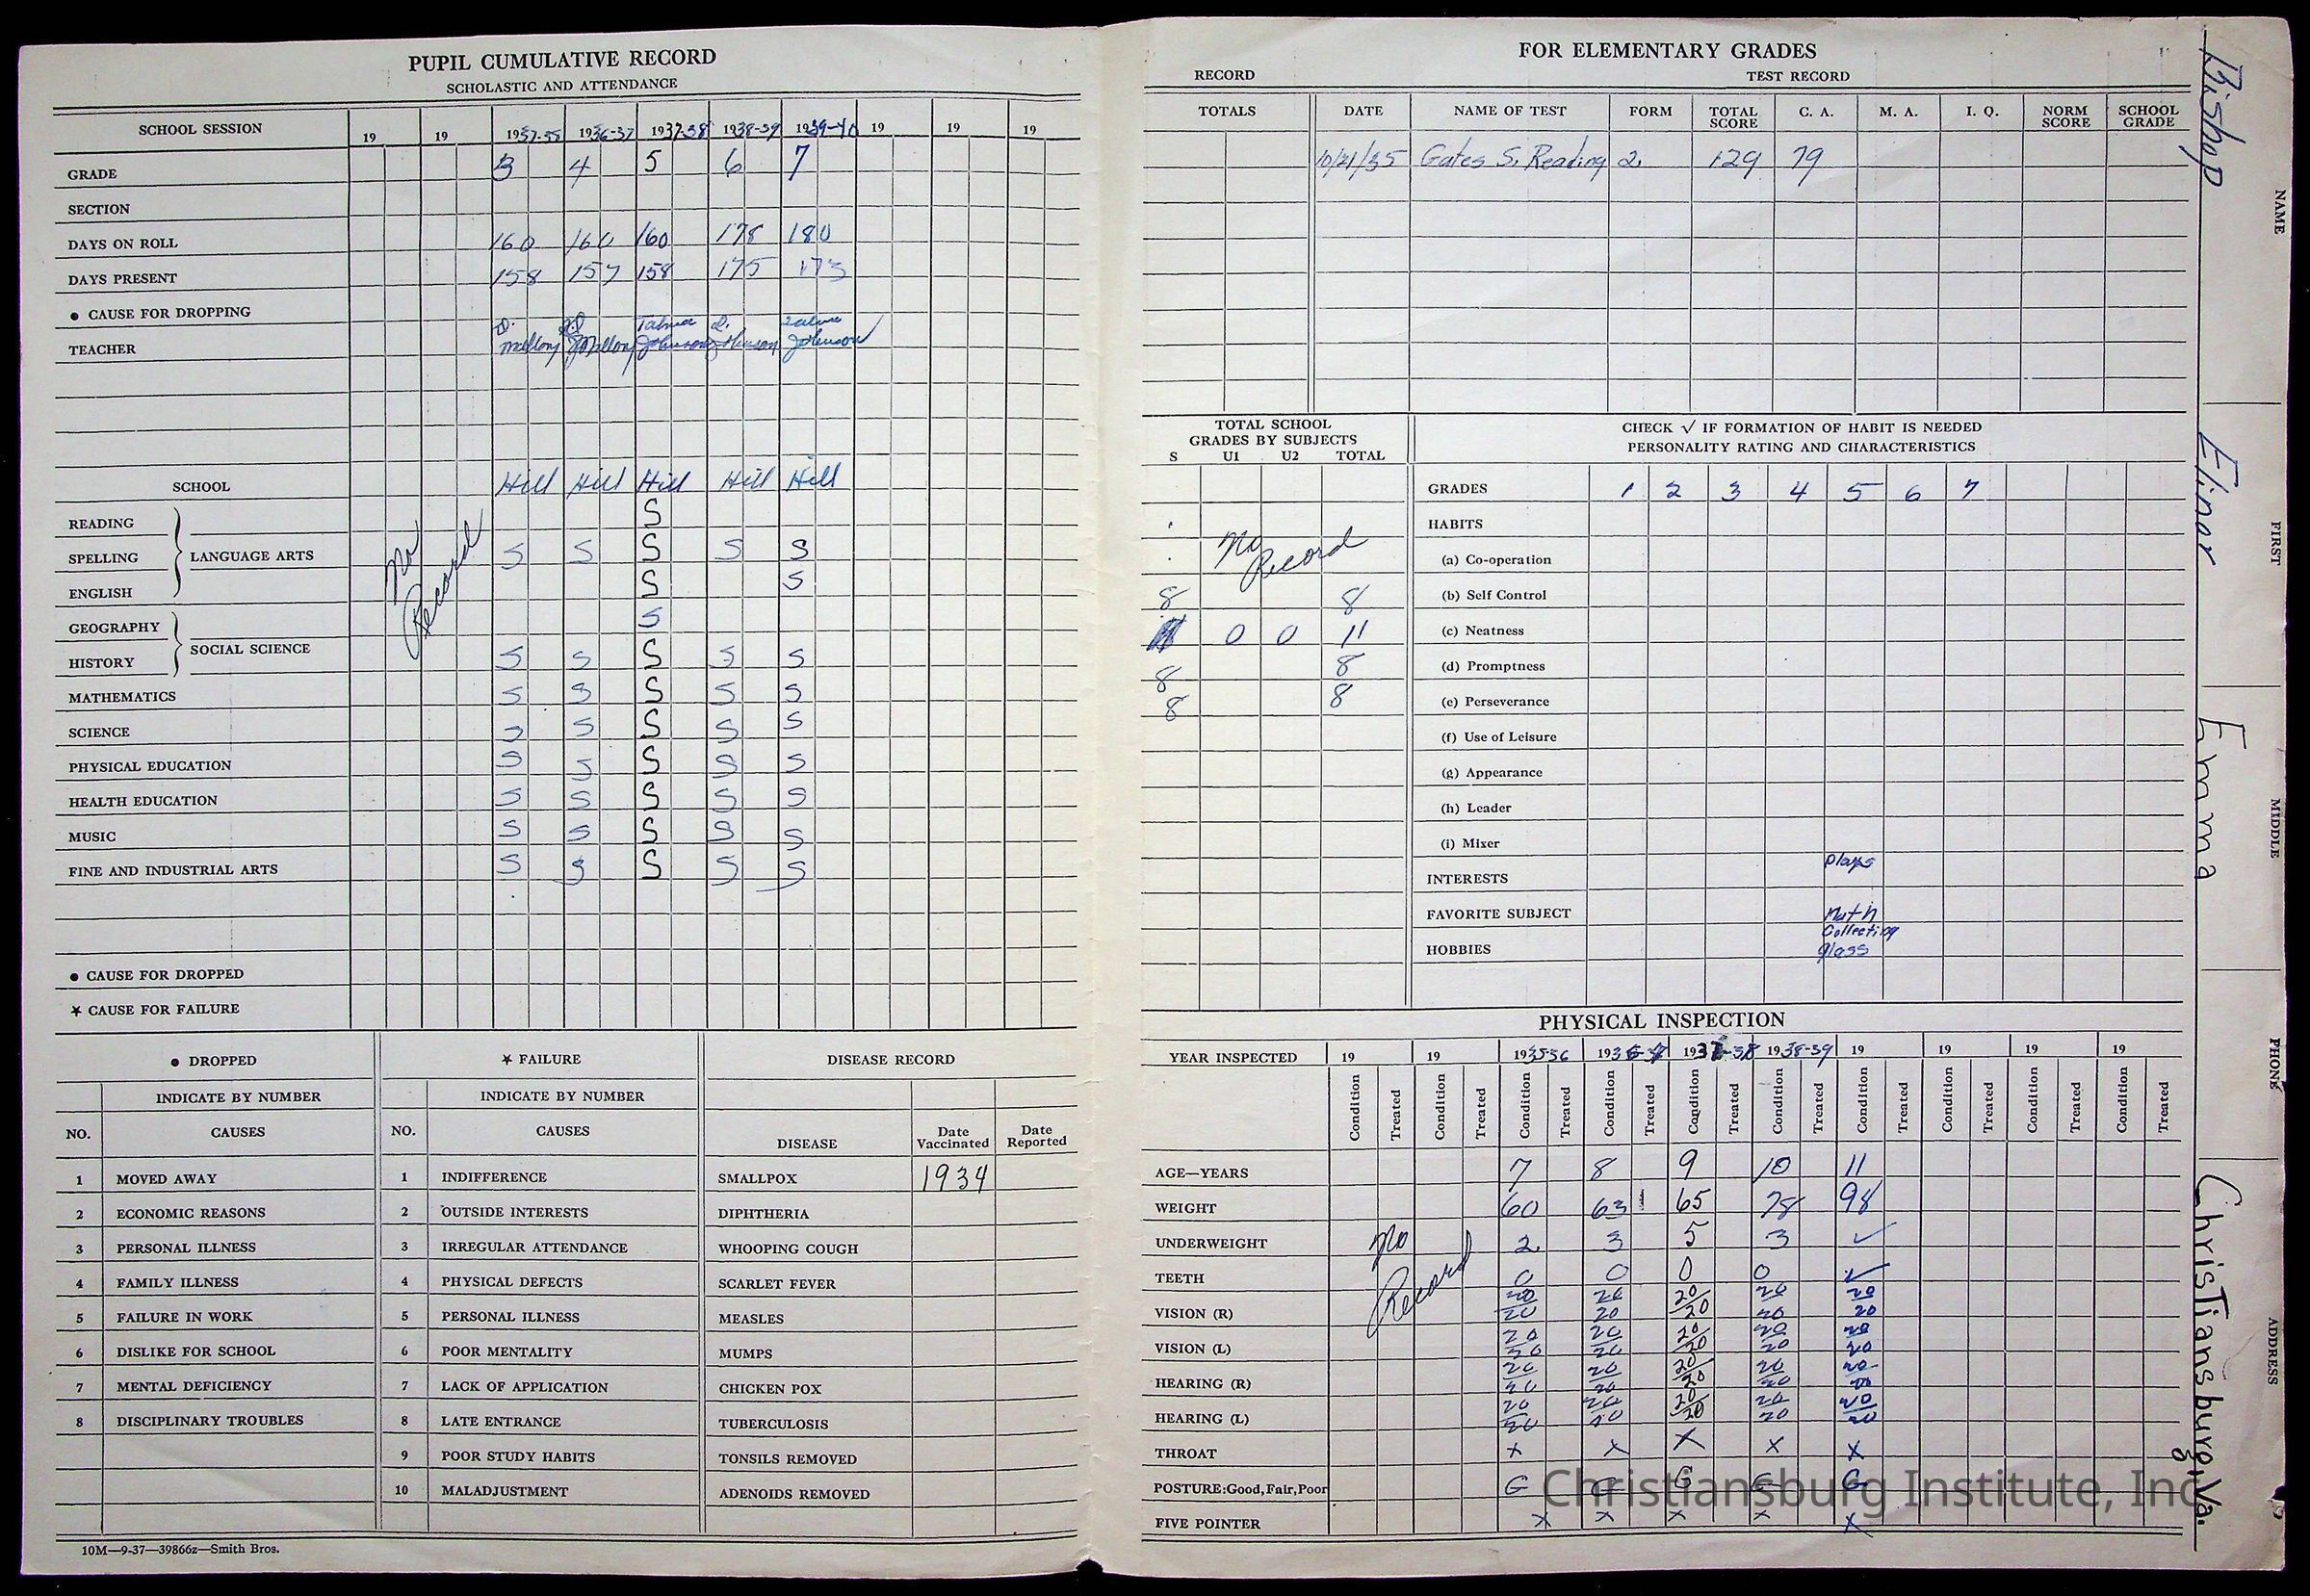 PUPIL CUMULATIVE RECORD
SCHOLASTIC AND ATTENDANCE
SCHOOL SESSION 19 19 1936-37 1937-38 1938-39 1939-40 19 19 19
GRADE 3 4 5 6 7
SECTION
DAYS ON ROLL 160 160 160 178 180
DAYS PRESENT 158 157 158 175 173
● CAUSE FOR DROPPING
TEACHER Johnson Johnson Johnson
SCHOOL Hill Hill Hill Hill Hill
No Record
READING S
SPELLING LANGUAGE ARTS S S S S S
ENGLISH S S
GEOGRAPHY S
HISTORY SOCIAL SCIENCE S S S S S
MATHEMATICS S S S S S
SCIENCE S S S S S
PHYSICAL EDUCATION S S S S S
HEALTH EDUCATION S S S S S
MUSIC S S S S S
FINE AND INDUSTRIAL ARTS S S S S S
● CAUSE FOR DROPPED
★ CAUSE FOR FAILURE
● DROPPED
INDICATE BY NUMBER
NO. CAUSES
1 MOVED AWAY
2 ECONOMIC REASONS
3 PERSONAL ILLNESS
4 FAMILY ILLNESS
5 FAILURE IN WORK
6 DISLIKE FOR SCHOOL
7 MENTAL DEFICIENCY
8 DISCIPLINARY TROUBLES
★ FAILURE
INDICATE BY NUMBER
NO. CAUSES
1 INDIFFERENCE
2 OUTSIDE INTERESTS
3 IRREGULAR ATTENDANCE
4 PHYSICAL DEFECTS
5 PERSONAL ILLNESS
6 POOR MENTALITY
7 LACK OF APPLICATION
8 LATE ENTRANCE
9 POOR STUDY HABITS
10 MALADJUSTMENT
DISEASE RECORD
DISEASE Date Vaccinated Date Reported
SMALLPOX 1934
DIPHTHERIA
WHOOPING COUGH
SCARLET FEVER
MEASLES
MUMPS
CHICKEN POX
TUBERCULOSIS
TONSILS REMOVED
ADENOIDS REMOVED
10M—9-37—39866z—Smith Bros.
FOR ELEMENTARY GRADES
RECORD TEST RECORD
TOTALS DATE NAME OF TEST FORM TOTAL SCORE C. A. M. A. I. Q. NORM SCORE SCHOOL GRADE
10/21/35 Gates S. Reading 2. 129 79
TOTAL SCHOOL
GRADES BY SUBJECTS
S U1 U2 TOTAL
No Record
8 8
0 0 11
8 8
8 8
CHECK √ IF FORMATION OF HABIT IS NEEDED
PERSONALITY RATING AND CHARACTERISTICS
GRADES 1 2 3 4 5 6 7
HABITS
(a) Co-operation
(b) Self Control
(c) Neatness
(d) Promptness
(e) Perseverance
(f) Use of Leisure
(g) Appearance
(h) Leader
(i) Mixer
INTERESTS plays
FAVORITE SUBJECT Math
HOBBIES Collecting glass
PHYSICAL INSPECTION
YEAR INSPECTED 19 19 1935-36 1936-37 1937-38 1938-39 19 19 19 19
Condition Treated Condition Treated Condition Treated Condition Treated Condition Treated Condition Treated Condition Treated Condition Treated Condition Treated Condition Treated
No Record
AGE—YEARS 7 8 9 10 11
WEIGHT 60 63 65 78 98
UNDERWEIGHT 2 3 5 3 ✓
TEETH 0 0 0 0 ✓
VISION (R) 20/20 20/20 20/20 20/20 20/20
VISION (L) 20/20 20/20 20/20 20/20 20/20
HEARING (R) 20/20 20/20 20/20 20/20 20/20
HEARING (L) 20/20 20/20 20/20 20/20 20/20
THROAT x x x x x
POSTURE:Good,Fair,Poor G G G G G
FIVE POINTER x x x x x
Bishop Elinor Emma Christiansburg, Va.
NAME FIRST MIDDLE PHONE ADDRESS
Christiansburg Institute, Inc